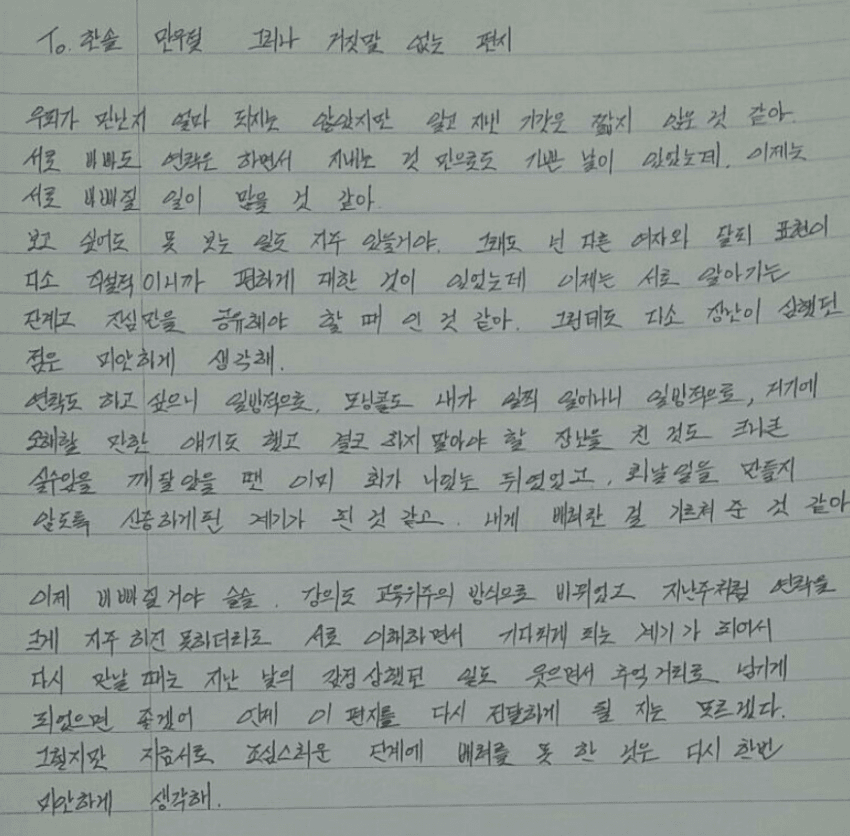 To. 한솔 만우절 그러나 거짓말 없는 편지
우리가 만난지 얼마 되지는 않았지만 알고 지낸 기간은 짧지 않은 것 같아.
서로 바빠도 연락은 하면서 지내는 것 만으로도 기쁜 날이 있었는데. 이제는
서로 바빠질 일이 많을 것 같아
보고 싶어도 못 보는 일도 자주 있을거야. 그래도 넌 다른 여자와 달리 표현이
다소 직설적이니까 편하게 대한 것이 있었는데 이제는 서로 알아가는
단계고 진심만을 공유해야 할 때 인 것 같아. 그런데도 다소 장난이 심했던
점은 미안하게 생각해.
연락도 하고 싶으니 일방적으로, 모닝콜도 내가 일찍 일어나니 일방적으로, 거기에
오해할 만한 얘기도 했고 결코 하지 말아야 할 장난을 친 것도 크나큰
실수임을 깨달았을 땐 이미 화가 나있는 뒤였었고, 화날일을 만들지
않도록 신중하게된 계기가 된 것 같고. 내게 배려란 걸 가르쳐 준 것 같아
이제 바빠질거야 슬슬. 강의도 교육위주의 방식으로 바뀌었고 지난주처럼 연락을
크게 자주 하진 못하더라도 서로 이해하면서 기다리게 되는 계기가 되어서
다시 만날 때는 지난 날의 감정상했던 일도 웃으면서 추억거리로 넘기게
되었으면 좋겠어 언제 이 편지를 다시 전달하게 될 지는 모르겠다.
그렇지만 지금서로 조심스러운 단계에 배려를 못 한 것은 다시 한번
미안하게 생각해.